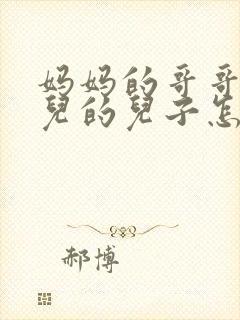 妈妈的哥哥
兒的兒子怎
郝博